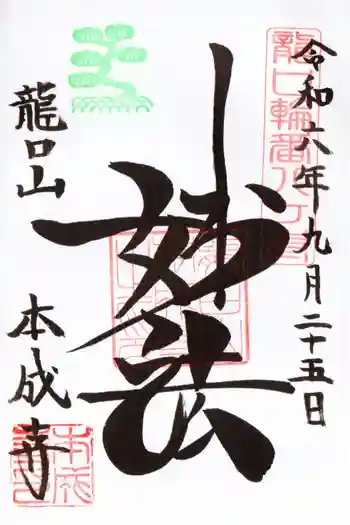 令和六年九月二十五日
龍口輪番八ヶ寺
妙法
龍口山 本成寺